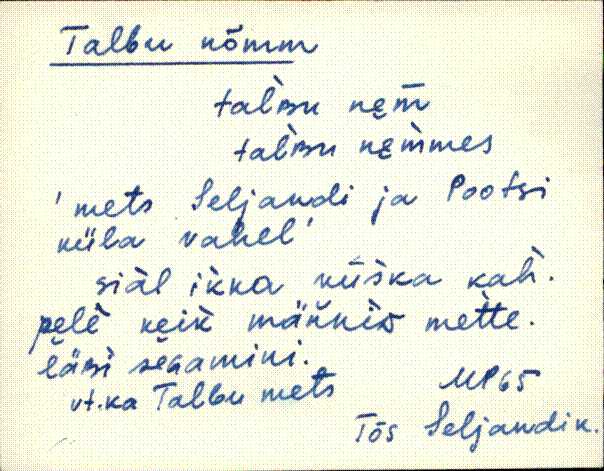 Talbu nõmm
talʙu nęm̄
talʙu nęm̀mes
'mets Seljandi ja Pootsi
küla vahel'
siàl ikka kùska kah̀.
pęlè keik männiɢ mètte.
läʙì sègamini.
vt.ka Talbu mets
MP65
Tõs Seljandi k.